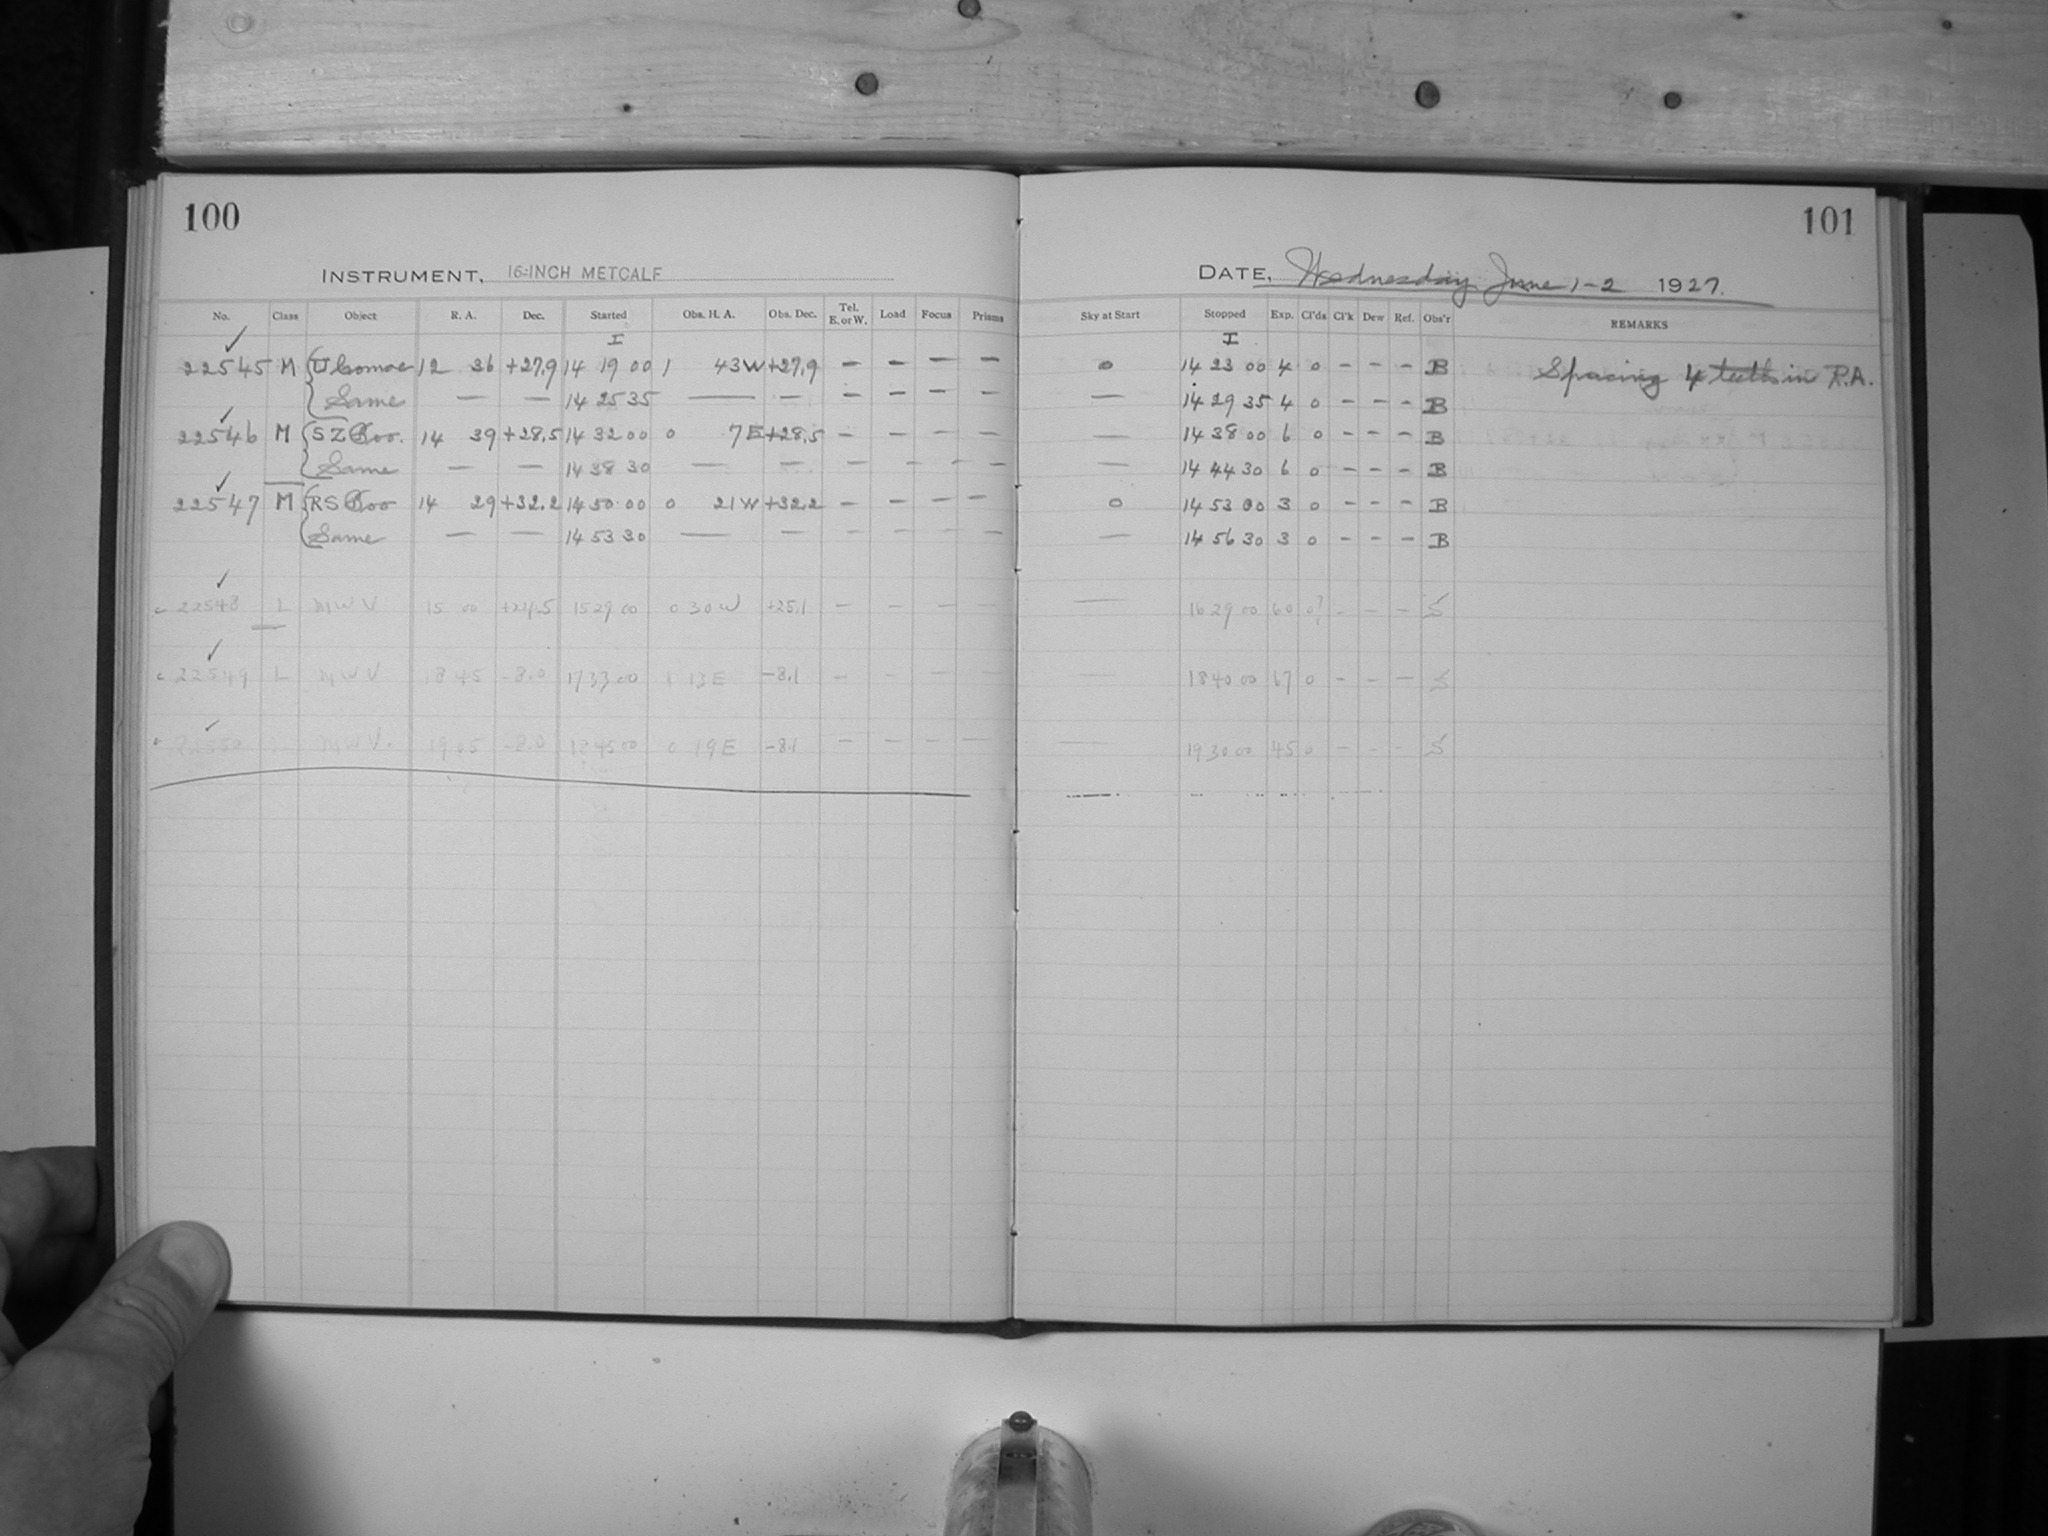 100
101
INSTRUMENT, 16-INCH METCALF
DATE, Wednesday June 1-2 1927.
No. Class Object R. A. Dec. Started Obs. H. A. Obs. Dec. Tel. E. or W. Load Focus Prisms Sky at Start Stopped Exp. Cl'ds Cl'k Dew Ref. Obs'r REMARKS
I I
22545 M U Comae 12 36 +27.9 14 19 00 1 43W +27.9 — — — — 0 14 23 00 4 0 - - - B Spacing 4 teeth in R.A.
Same — — 14 25 35 — — - - - - — 14 29 35 4 0 - - - B
22546 M SZ Boo. 14 39 +28.5 14 32 00 0 7E +28.5 - - - - — 14 38 00 6 0 - - - B
Same — — 14 38 30 — — - - - - — 14 44 30 6 0 - - - B
22547 M RS Boo 14 29 +32.2 14 50 00 0 21W +32.2 - - - - 0 14 53 00 3 0 - - - B
Same — — 14 53 30 — — - - - - — 14 56 30 3 0 - - - B
22548 L MWV 15 00 +24.5 15 29 00 0 30W +25.1 - - - - — 16 29 00 60 0? - - - S
22549 L MWV 18 45 -8.0 17 33 00 1 13E -8.1 - - - - — 18 40 00 67 0 - - - S
22550 L MWV. 19 05 -8.0 18 45 00 0 19E -8.1 - - - - — 19 30 00 45 0 - - - S